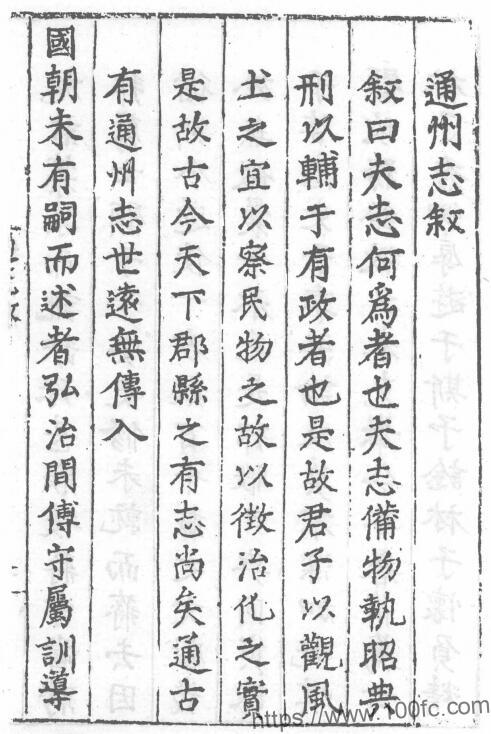 通州志敘
敘曰夫志何爲者也夫志備物執昭典
刑以輔于有政者也是故君子以觀風
土之宜以察民物之故以徵治化之實
是故古今天下郡縣之有志尚矣通古
有通州志世遠無傳入
國朝未有嗣而述者弘治間傅守屬訓導
https://www.100fc.com